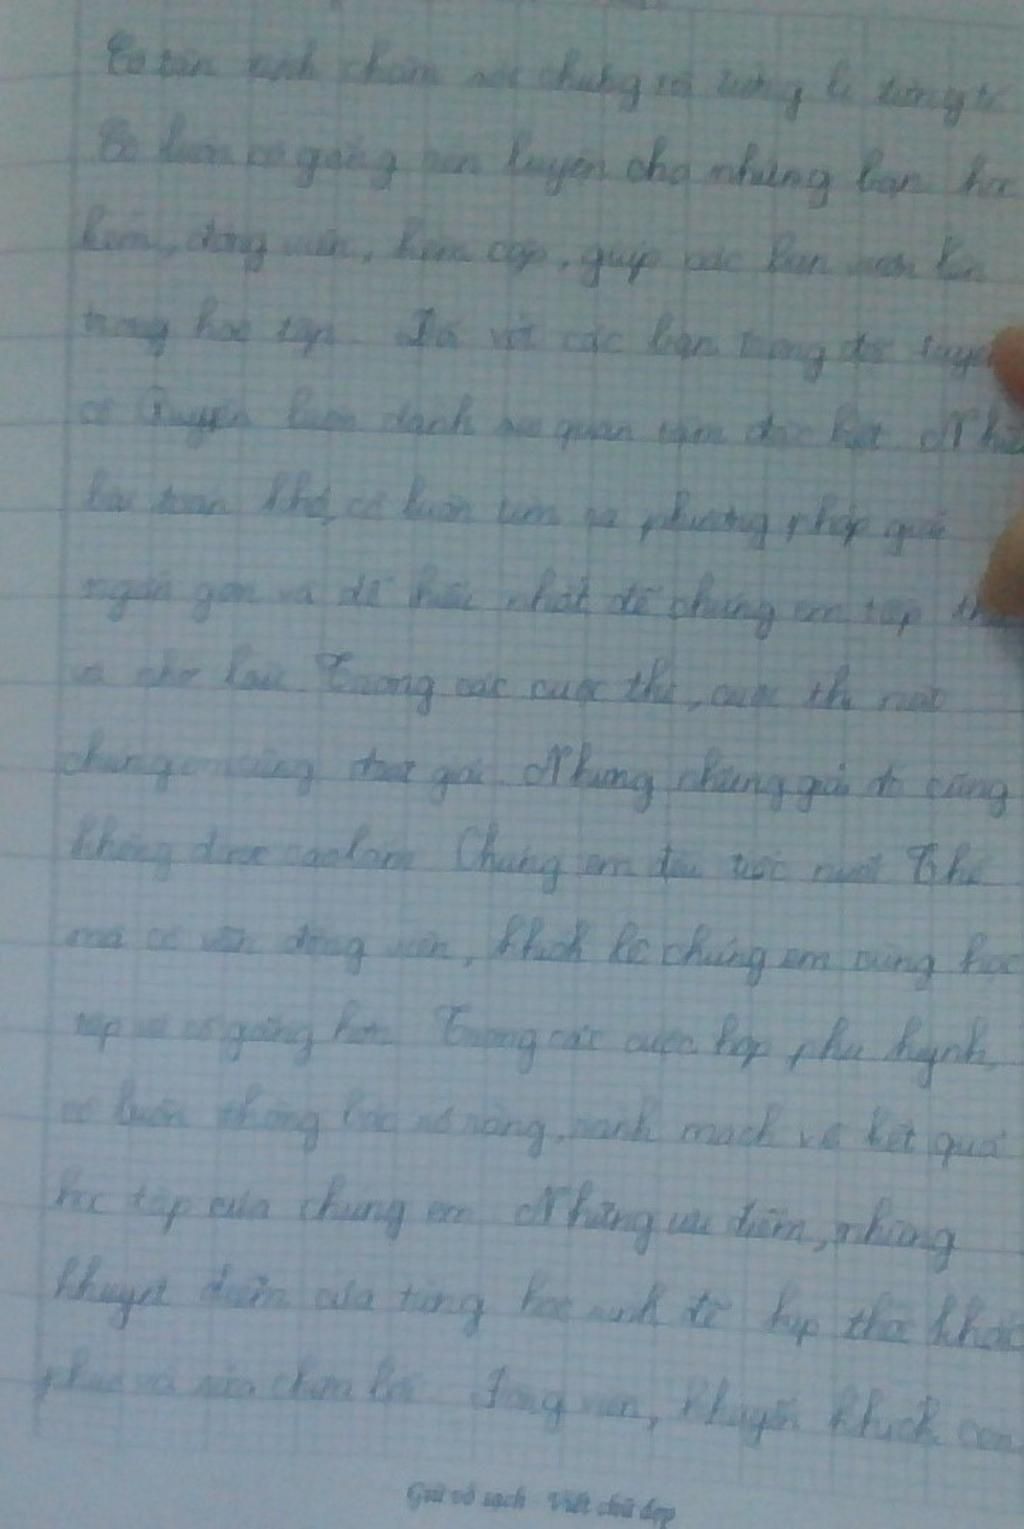 Cô tận tình chăm sóc chúng em từng li từng tí
Cô luôn cố gắng rèn luyện cho những bạn học
kém, động viên, kèm cặp, giúp các bạn
trong học tập. Đối với các bạn trong đội tuyển
cô Quyên luôn dành sự quan tâm đặc biệt. Nhữ
bài toán khó, cô luôn tìm ra phương pháp giải
ngắn gọn và dễ hiểu nhất để chúng em tiếp th
và nhớ lâu. Trong các cuộc thi, cuộc thi nào
chúng em cũng đạt giải. Nhưng những giải đó cũng
không được cao lắm. Chúng em đều Thế
mà cô vẫn động viên, khích lệ chúng em cùng học
tập và cố gắng hơn. Trong các cuộc họp phụ huynh,
cô luôn thông báo rõ ràng, rành mạch về kết quả
học tập của chúng em. Những ưu điểm, những
khuyết điểm của từng học sinh để kịp thời khắc
phục và sửa chữa lỗi. Động viên, khuyến khích con
Giữ vở sạch Viết chữ đẹp